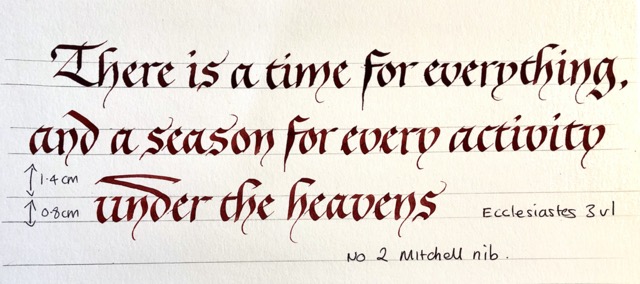 There is a time for everything,
and a season for every activity
1.4cm
under the heavens
0.8cm
Ecclesiastes 3 v1
No 2 Mitchell nib.